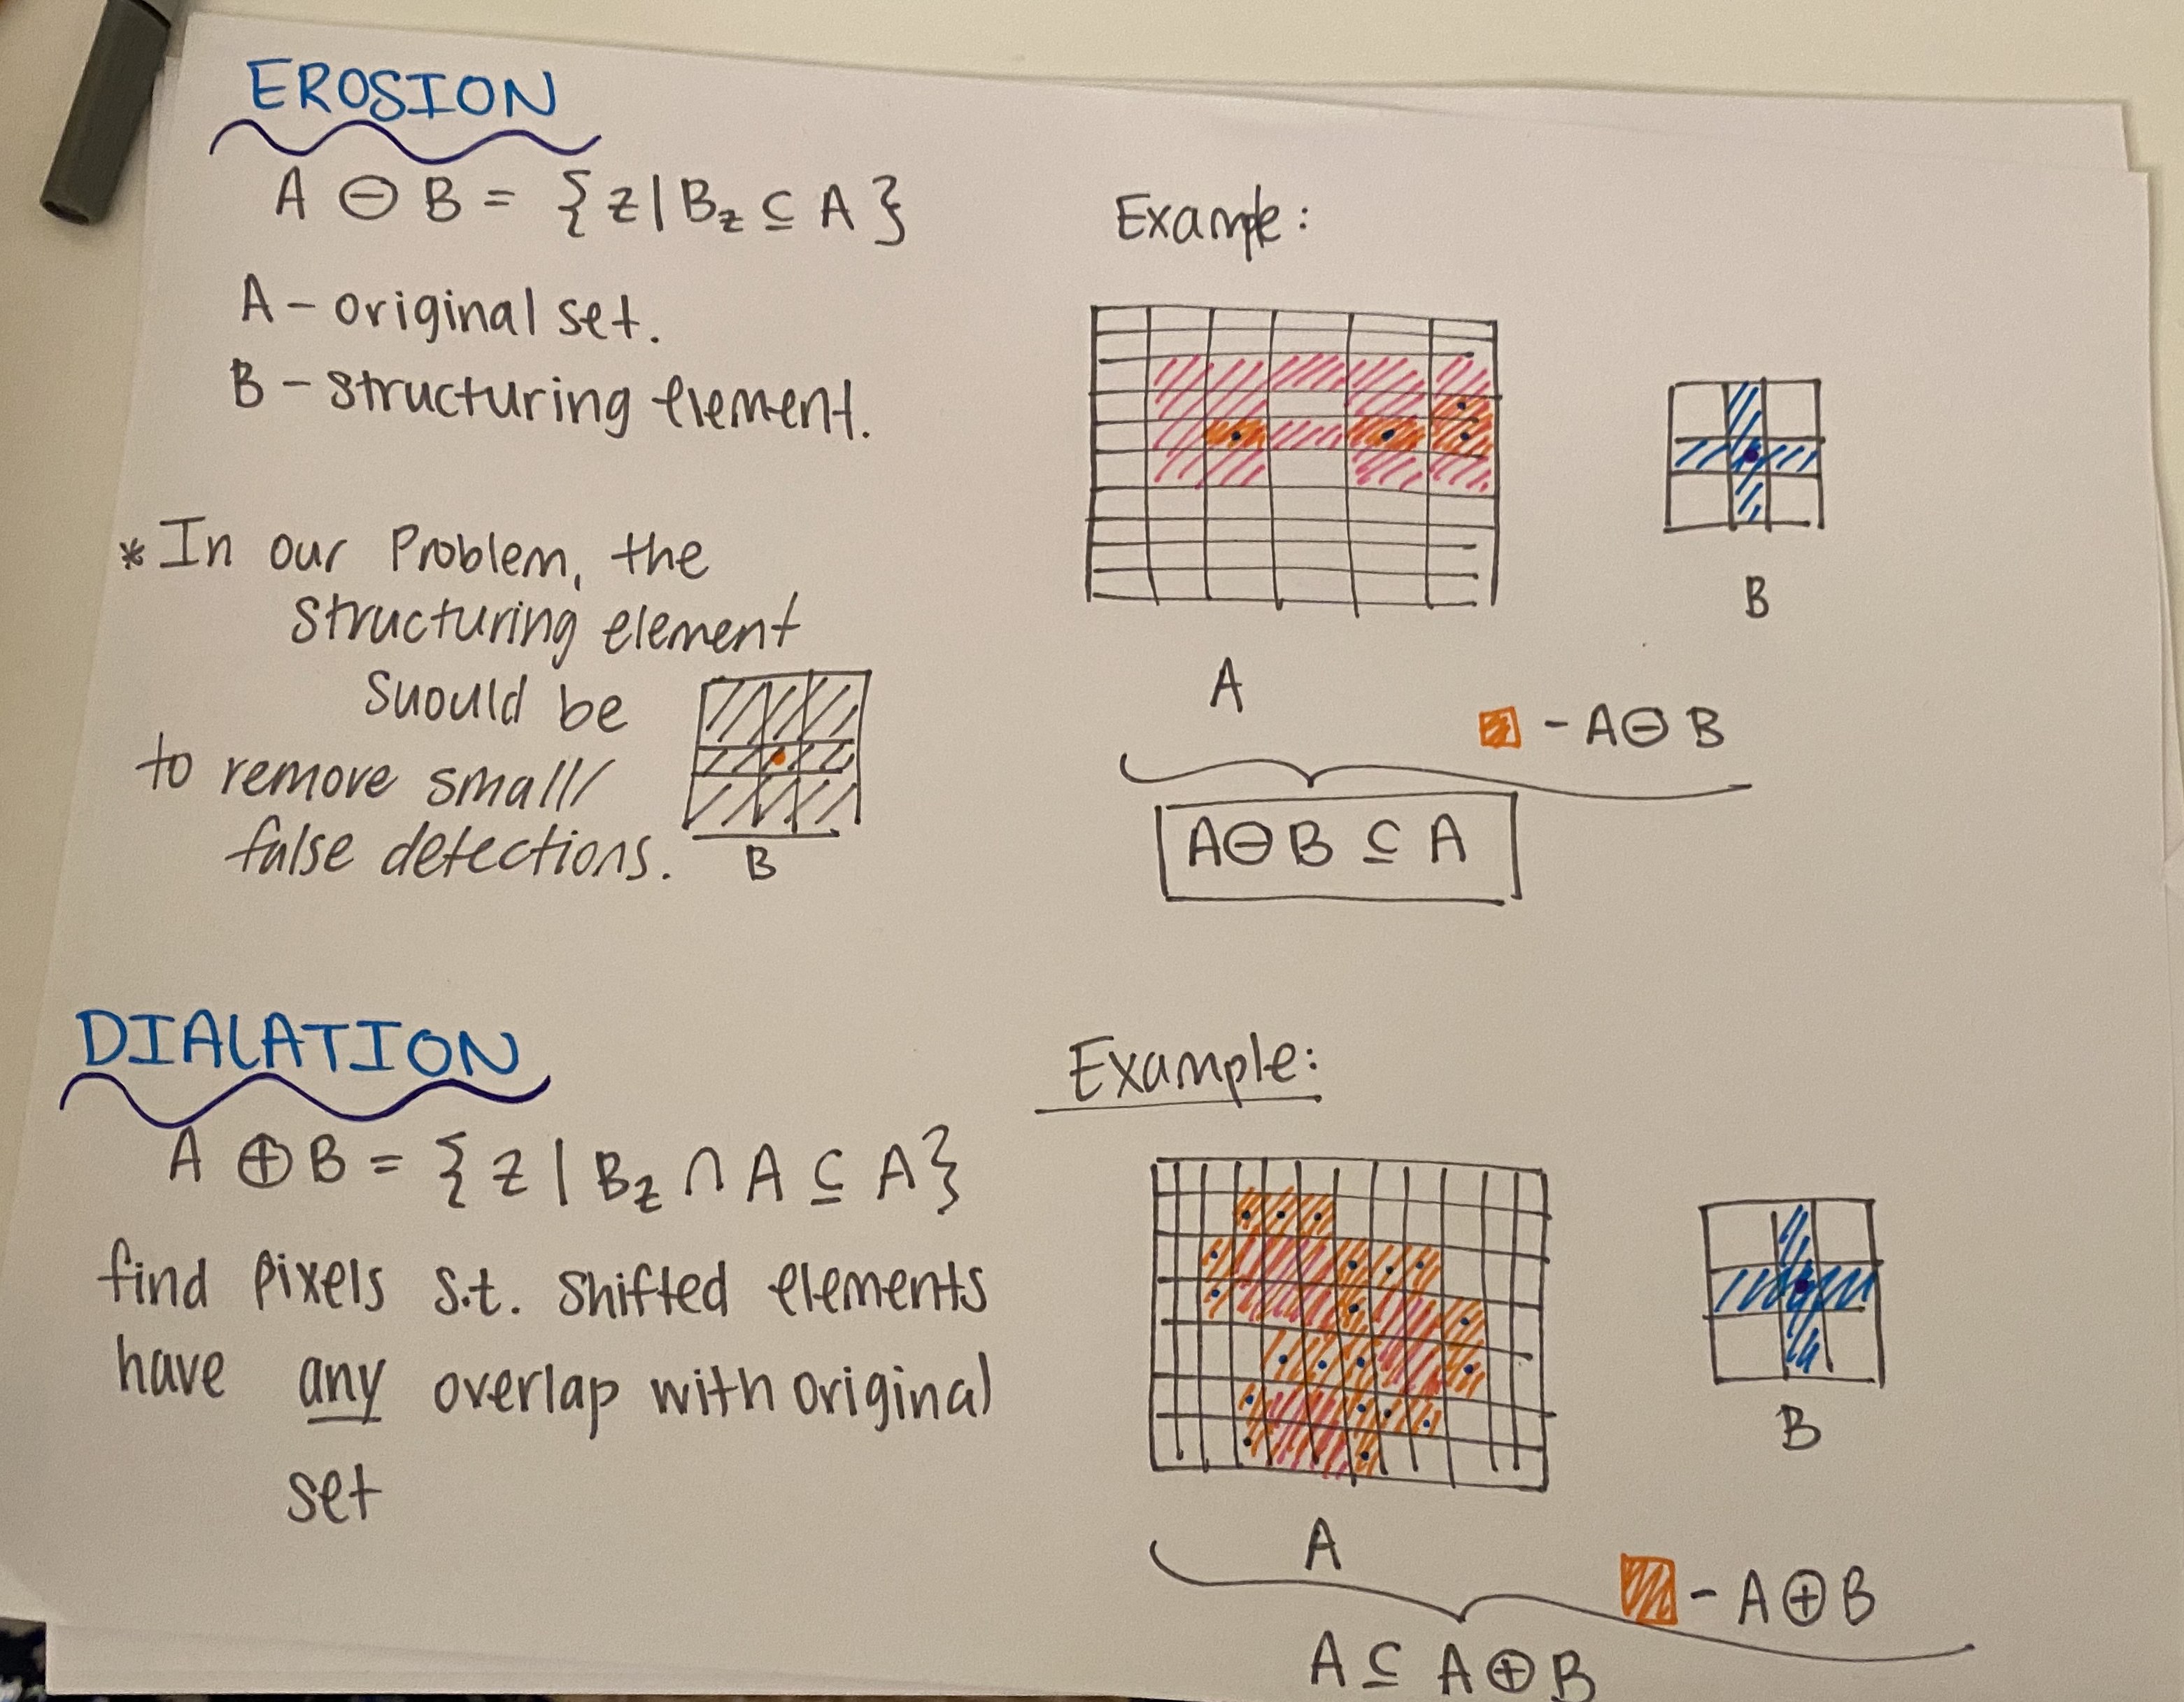 EROSION
A ⊖ B = {z | B_z ⊆ A}
A - original set.
B - structuring element.
* In our Problem, the
structuring element
suould be
to remove small/
false detections.
B
Example:
A
B
- A ⊖ B
A ⊖ B ⊆ A
DIALATION
A ⊕ B = {z | B_z ∩ A ⊆ A}
find pixels s.t. shifted elements
have any overlap with original
set
Example:
A
B
- A ⊕ B
A ⊆ A ⊕ B